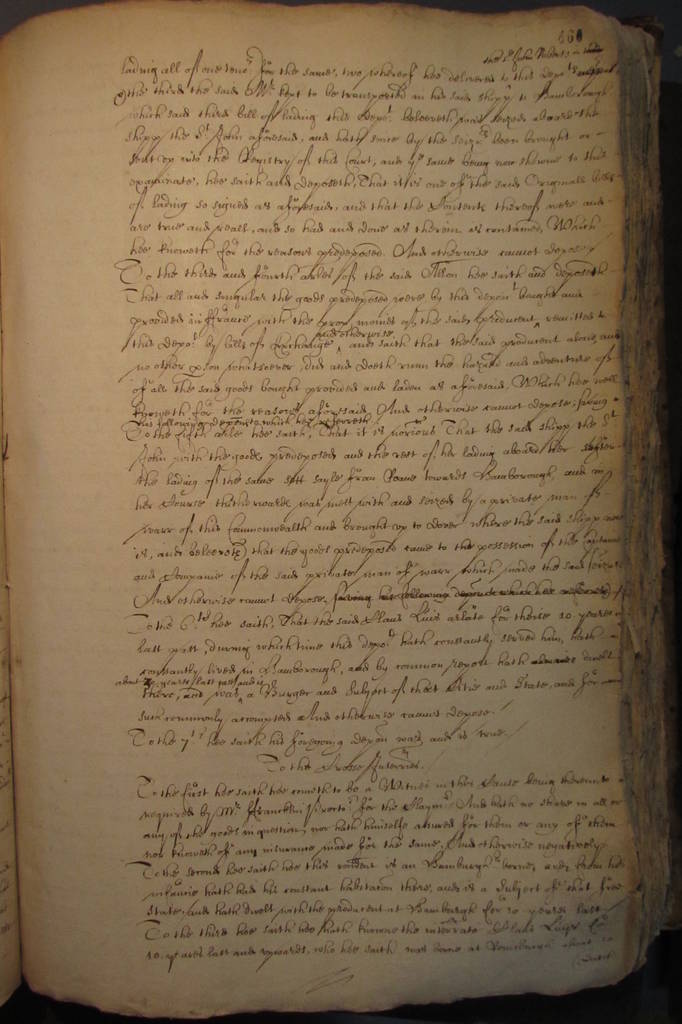 160
the sd John
lading all of one teno.r for the same, two whereof hee delivered to this depot
the third the said Mr kept to be transported in his said shipp to Hamborough
which said third bill of lading this depot. beleeveth was seized aboard the
shipp the St. John aforesaid, and hath since by the seizrs been brought or
sent up into the Registry of this Court, and ye same being now showne to this
examinate, hee saith and deposeth, That it is one of the said Originall bills
of lading so signed as aforesaid, and that the Contents thereof were and
are true and reall, and so had and done as therein is contained, Which
hee knoweth for the reasons predeposed. And otherwise cannot depose/
To the third and fourth arles of the said Allon hee saith and deposeth
That all and singular the goods predeposed were by this depont bought and
provided in ffrance with the prop moneis of the said producent, remitted to
this depot. by bills of Exchange, and saith that the said producent alone, and
and otherwise
no other pson whatsoever, did and doeth runn the hazard and adventure of
of all the said goods bought provided and laden as aforesaid, Which hee well
knoweth for the reasons aforesaid. And otherwise cannot depose, saving
his following depons which hee referreth
To the fifth arle hee saith, That it is notious That the said shipp the St
John with the goods predeposed and the rest of her lading aboard her after
the lading of the same sett sayle from Roane towards Hamborough, and in
her Course thitherwards was mett with and seized by a private man of
warr of this Commonwealth and brought up to Dover where the said shipp now
is, and beleeveth that the goods predeposed came to the possession of the Captaine
and Companie of the said private man of warr which made the said seizure
And otherwise cannot depose, saving his following depons which hee referreth/
To the 6.th hee saith, That the said Claus Luis arlate for theise 10 yeares
last past, during which time this depot hath constantly served him, hath
constantly lived in Hamborough, and by common report hath dwelt
about yeares last past, and is
there, and was a Burger and Subject of that Citie and State, and for
such commonly accompted And otherwise cannot depose./
To the 7th hee saith his foregoing depon was and is true./
To the Crosse Interries.
To the first hee saith hee cometh to be a Witnes in this Cause being thereunto
required by Mr ffrancklin Proctor for the Claymt. And hath no share in all or
any of the goods in question, nor hath himselfe assured for them or any of them
nor knoweth of any insurance made for the same, And otherwise negatively.
To the second hee saith hee this rondent is an Hamburgher borne, and from his
infancie hath had his constant habitation there, and is a Subject of that free
State, and hath dwelt with the producent at Hamburgh for 10 yeares last
To the third hee saith hee hath knowne the interrate Claus Luys for
10. yeares last and upwards, who hee saith was borne at about